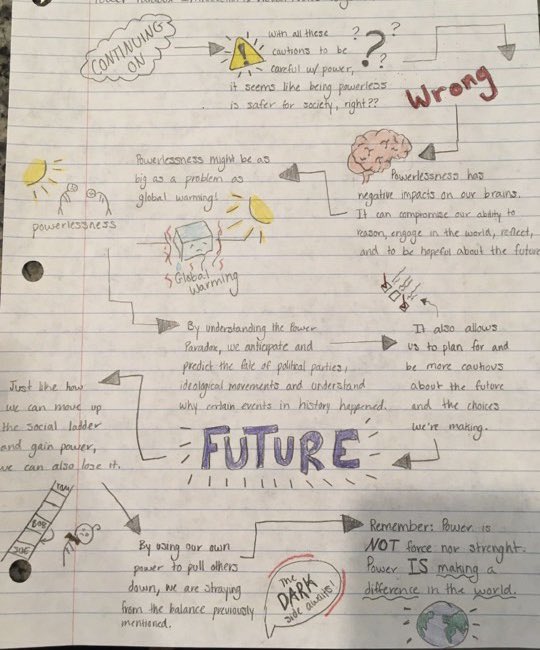 CONTINUING
ON
With all these
cautions to be
careful w/ power,
it seems like being powerless
is safer for society, right??
? ? ?
Wrong
Powerlessness has
negative impacts on our brains.
It can compromise our ability to
reason, engage in the world, reflect,
and to be hopeful about the future
Powerlessness might be as
big as a problem as
global warming!
powerlessness
Global
Warming
By understanding the Power
Paradox, we anticipate and
predict the fate of political parties,
ideological movements and understand
why certain events in history happened.
It also allows
us to plan for and
be more cautious
about the future
and the choices
we're making.
FUTURE
Just like how
we can move up
the social ladder
and gain power,
we can also lose it.
BOB
JOE
By using our own
power to pull others
down, we are straying
from the balance previously
mentioned.
The
DARK
side awaits!
Remember: Power is
NOT force nor strenght.
Power IS making a
difference in the world.